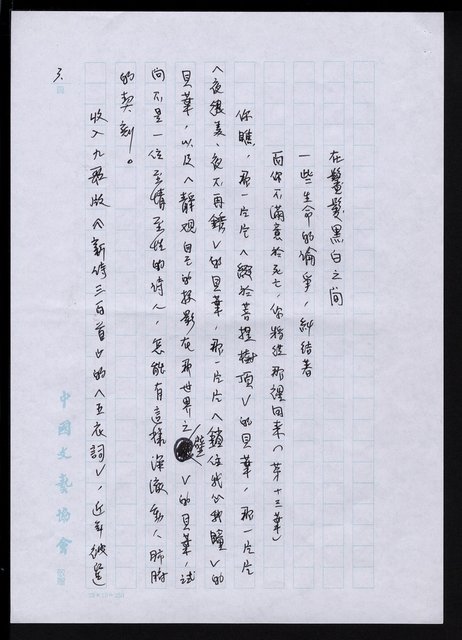 在鬢髮黑白之間
一些生命的論爭，糾結著
而你不滿意於死亡，你將從那裡回來（第十三葉）
你瞧，那一片片〈繫於菩提樹頂〉的貝葉，那一片片
〈夜很美，夜不再錯〉的貝葉，那一片片〈鎖住我的我瞳〉的
貝葉，以及〈靜觀自己的探影在那世界之壁〉的貝葉，試
問不是一位至情至性的詩人，怎能有這樣深澈動人肺腑
的契刻。
收入九歌版《新詩三百首》的〈五衣詞〉，近年被選
3.
中國文藝協會